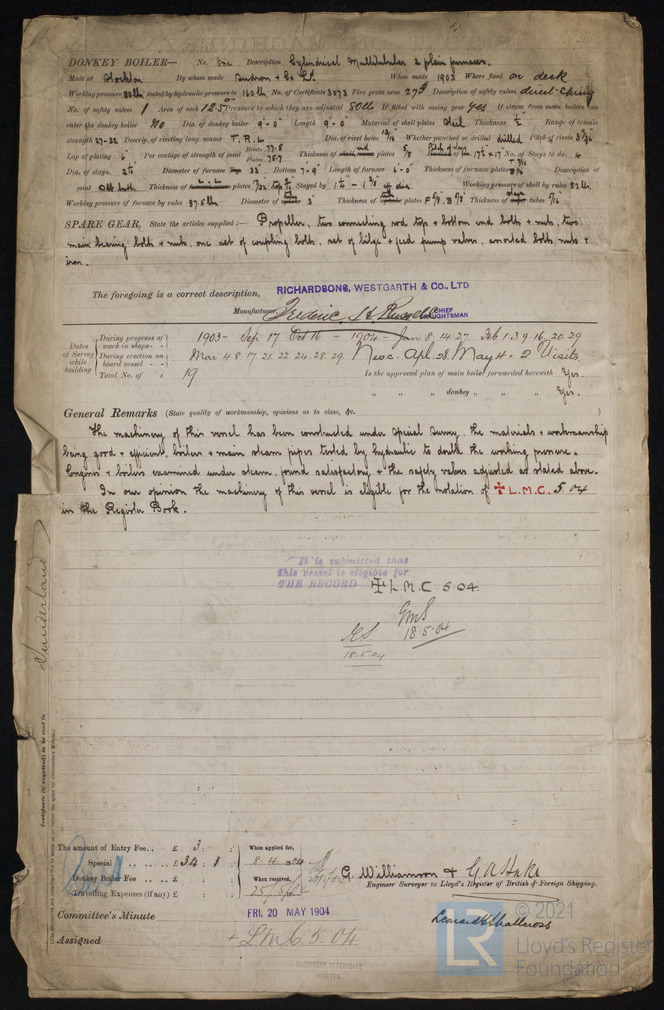 DONKEY BOILER— No. One Description Cylindrical Multitubular 2 plain furnaces.
Made at Stockton By whom made & Co Ld. When made 1903 Where fixed on deck
Working pressure 80lb tested by hydraulic pressure to 160lb No. of Certificate 3073 Fire grate area 27 Description of safety valves direct-spring
No. of safety valves 1 Area of each 12.5 Pressure to which they are adjusted 80lb If fitted with easing gear yes If steam from main boilers can
enter the donkey boiler No Dia. of donkey boiler 9'-0" Length 9'-0" Material of shell plates Steel Thickness ½ Range of tensile
strength 27-32 Descrip. of riveting long. seams T.R.L Dia. of rivet holes 13/16 Whether punched or drilled drilled Pitch of rivets
Lap of plating 6" Per centage of strength of joint Rivets 77.5 Plates 75.7 Thickness of end plates 5/8 Pitch of stays 17½ x 17 No. of Stays to do. 4
Dia. of stays. Diameter of furnace Top 33" Bottom 7-9" Length of furnace 6-0" Thickness of furnace plates Description of
joint Thickness of plates Stayed by Working pressure of shell by rules 82lb
Working pressure of furnace by rules 87.5lbs Diameter of tubes 3" Thickness of plates F 5/8 B 5/8 Thickness of tubes 5/16
SPARE GEAR. State the articles supplied:— Propeller, two connecting rod top & bottom end bolts & nuts, two
main bearing bolts & nuts, one set of coupling bolts, set of bilge & feed pump valves, assorted bolts nuts &
iron.
The foregoing is a correct description,
RICHARDSONS, WESTGARTH & Co., LTD
Manufacturer. Frederic H Russell CHIEF DRAUGHTSMAN
Dates of Survey while building
During progress of work in shops- - 1903- Sep. 17 Oct 16 - 1904- Jan 8.14.27 Feb 1.3.9.16.20.29
During erection on board vessel - - Mar 4.8.17.21.22.24.28.29. Newc. Apl. 28. May 4 = 2 Visits
Total No. of visits 19 Is the approved plan of main boiler forwarded herewith Yes.
" " " donkey " " " Yes.
General Remarks (State quality of workmanship, opinions as to class, &c. )
The machinery of this vessel has been constructed under special survey, the materials & workmanship
being good & efficient, boilers & main steam pipes tested by hydraulic to double the working pressure.
Engines & boilers examined under steam, found satisfactory, & the safety valves adjusted as stated above.
In our opinion the machinery of this vessel is eligible for the notation of ✠ L.M.C. 5.04
in the Register Book.
It is submitted that
this vessel is eligible for
THE RECORD ✠ L.M.C. 5.04.
18.5.04
18.5.04
Sunderland
Certificate (if required) to be sent to
The amount of Entry Fee.. £ 3 : : When applied for,
Special .. .. .. £ 34 : 1 : 8.4.1904
Donkey Boiler Fee .. .. .. £ : : When received,
Travelling Expenses (if any) £ : :
G. Williamson & G A Hake
Engineer Surveyor to Lloyd's Register of British & Foreign Shipping.
Committee's Minute FRI. 20 MAY 1904
Assigned + L.M.C. 5.04.
© 2021
LR
Lloyd's Register
Foundation